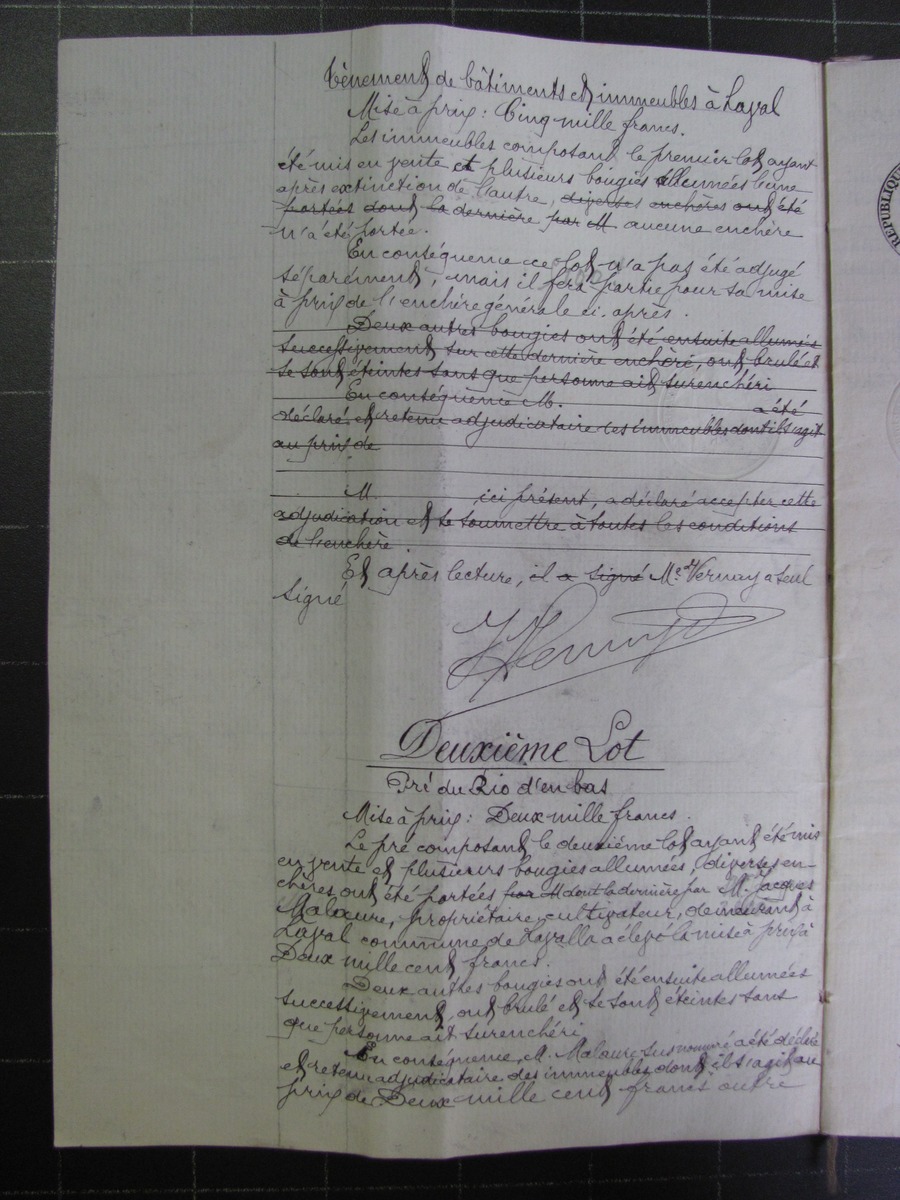 Tènement de bâtiments et immeubles à Laval
Mise à prix : Cinq mille francs.
Les immeubles composant le premier lot ayant
été mis en vente et plusieurs bougies allumées l'une
après extinction de l'autre, diverses enchères ont été
portées dont la dernière par M. aucune enchère
n'a été portée.
En conséquence ce lot n'a pas été adjugé
séparément, mais il fera partie pour sa mise
à prix de l'enchère générale ci-après.
Deux autres bougies ont été ensuite allumées
successivement sur cette dernière enchère, ont brulé et
se sont éteintes sans que personne ait surenchéri
En conséquence M. a été
déclaré et retenu adjudicataire des immeubles dont il s'agit
au prix de
M. ici présent, a déclaré accepter cette
adjudication et se soumettre à toutes les conditions
de l'enchère.
Et après lecture, il a signé Me Vernay a seul
signé
Vernay
Deuxième Lot
Pré du Rio d'en bas
Mise à prix : Deux mille francs.
Le pré composant le deuxième lot ayant été mis
en vente et plusieurs bougies allumées, diverses en-
chères ont été portées par M dont la dernière par M. Jacques
Malaure, propriétaire cultivateur, demeurant à
Laval commune de Lavalla a élevé la mise à prix à
Deux mille cent francs.
Deux autres bougies ont été ensuite allumées
successivement, ont brulé et se sont éteintes sans
que personne ait surenchéri
En conséquence, M. Malaure susnommé a été déclaré
et retenu adjudicataire des immeubles dont il s'agit au
prix de Deux mille cent francs outre
REPUBLIQUE